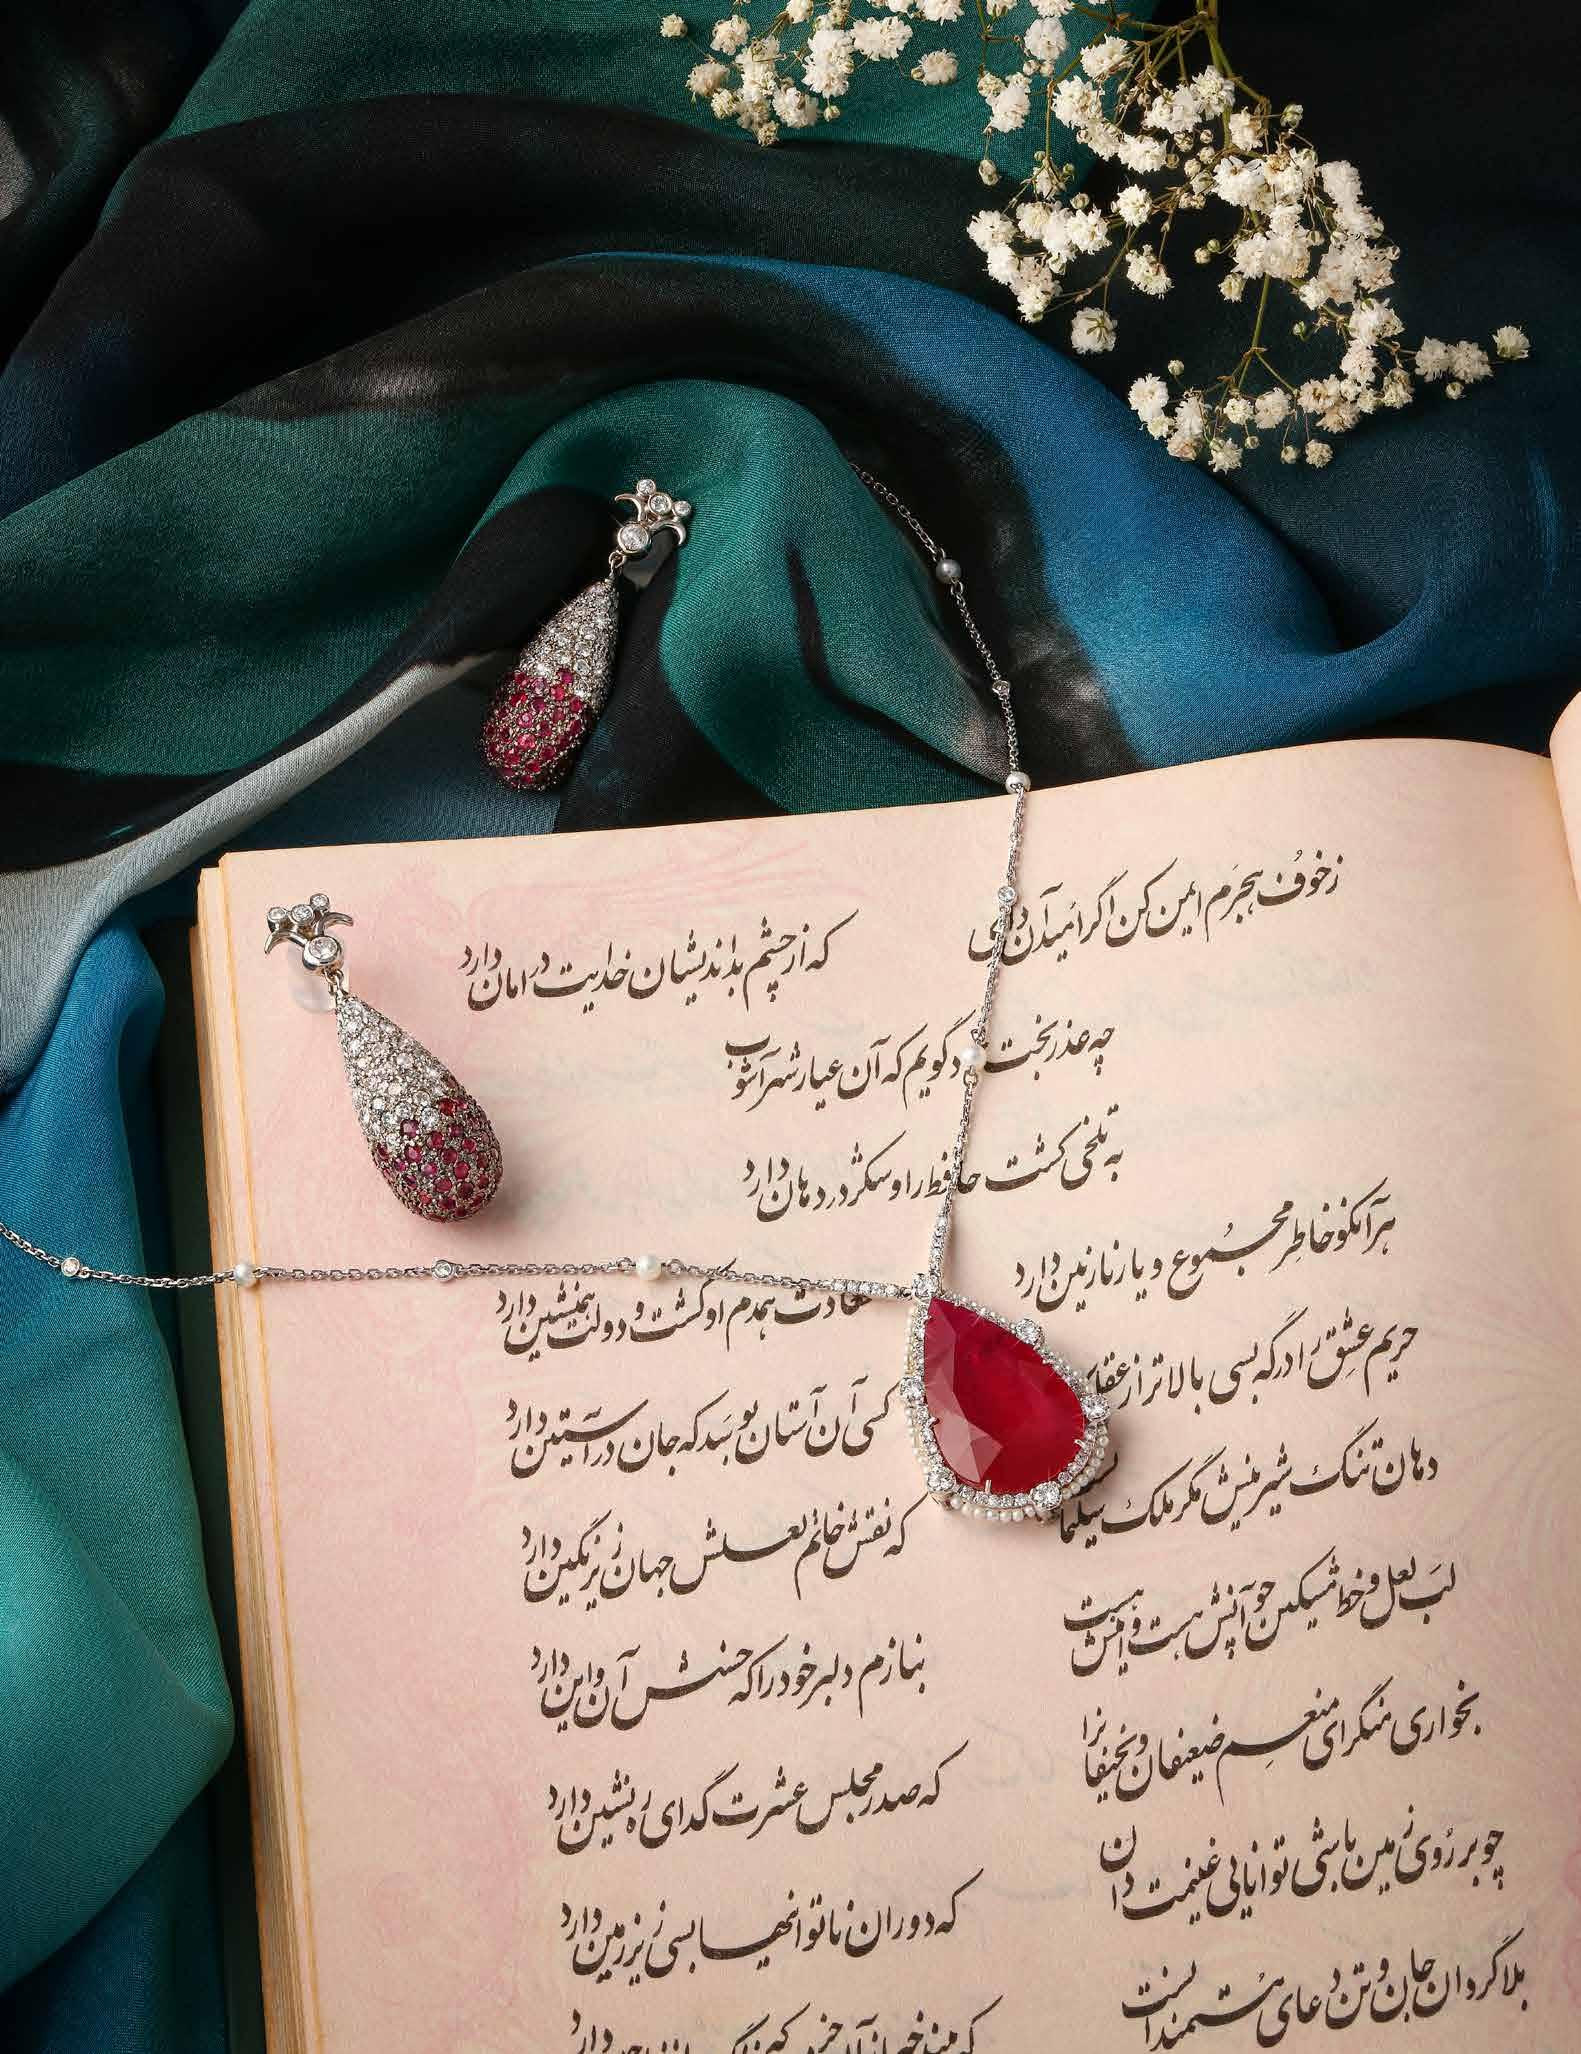 ز خوف هجرم ایمن کن اگر امید آن داری
که از چشم بداندیشان خدایت در امان دارد
چه عذر بخت د گویم که آن عیار شهرآشوب
به تلخی کشت حافظ را و شکر در دهان دارد
هر آنکو خاطر مجموع و یار نازنین دارد
سعادت همدم او گشت و دولت همنشین دارد
حریم عشق را درگه بسی بالاتر از عقل
کسی آن آستان بوسد که جان در آستین دارد
دهان تنگ شیرینش مگر ملک سلیمان
که نقش خاتم لعلش جهان زیر نگین دارد
لب لعل و خط مشکین چو آنش هست و اینش هست
بنازم دلبر خود را که حسنش آن و این دارد
بخواری منگر ای منعم ضعیفان و نحیفانرا
که صدر مجلس عشرت گدای ره نشین دارد
چو بر روی زمین باشی توانایی غنیمت دان
که دوران ناتوانیها بسی زیر زمین دارد
بلاگردان جان و تن دعای مستمندانست
که دارد